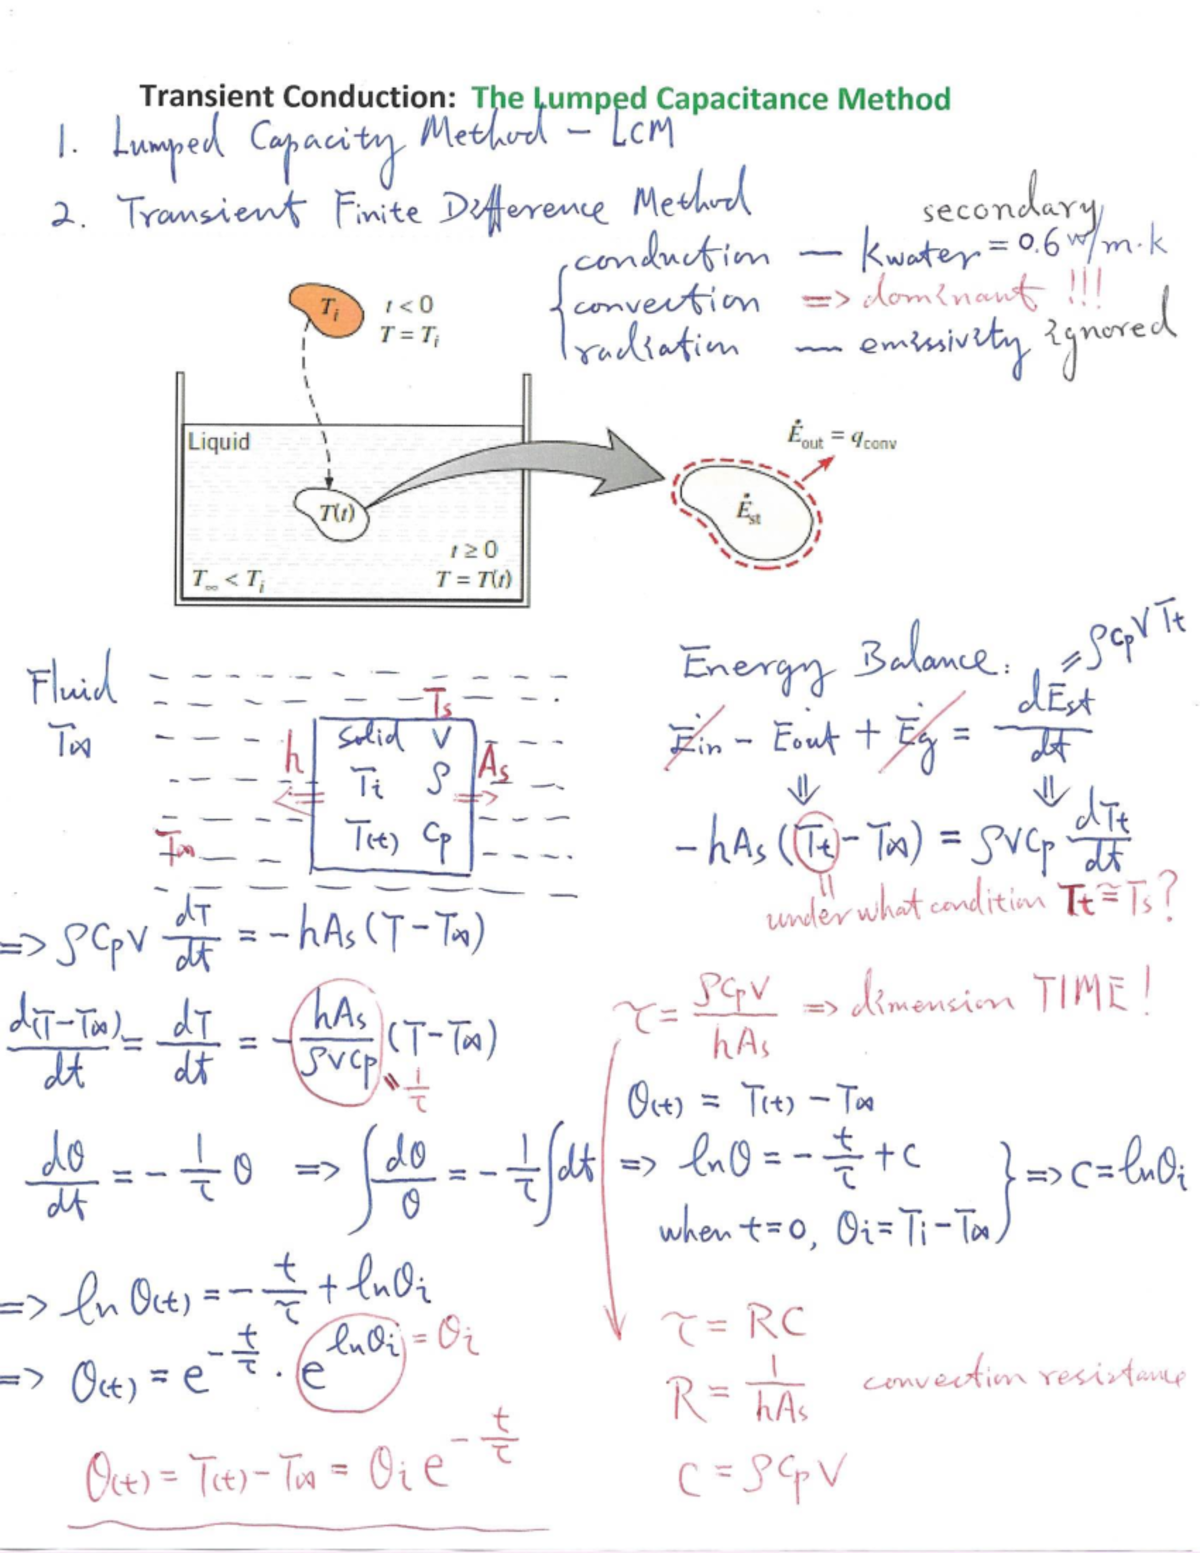 Transient Conduction: The Lumped Capacitance Method
1. Lumped Capacity Method - LCM
2. Transient Finite Difference Method
secondary
conduction — Kwater = 0.6 W/m·k
convection => dominant !!!
radiation — emissivity ignored
Ti
t < 0
T = Ti
Liquid
T(t)
t ≥ 0
T∞ < Ti
T = T(t)
Ėout = qconv
Ėst
Fluid
T∞
Ts
Solid V
h
Ti ρ
As
T(t) Cp
T∞
Energy Balance:
= ρCpVTt
Ėin - Ėout + Ėg = dEst/dt
⇓ ⇓
-hAs(Tt - T∞) = ρVCp dTt/dt
under what condition Tt ≅ Ts?
=> ρCpV dT/dt = -hAs(T-T∞)
d(T-T∞)/dt = dT/dt = -hAs/ρVCp (T-T∞)
= 1/τ
τ = ρCpV/hAs => dimension TIME!
θ(t) = T(t) - T∞
dθ/dt = -1/τ θ => ∫dθ/θ = -1/τ ∫dt => lnθ = -t/τ + C
when t=0, θi = Ti - T∞
} => C = lnθi
=> ln θ(t) = -t/τ + lnθi
=> θ(t) = e^(-t/τ) · e^(lnθi) = θi
θ(t) = T(t) - T∞ = θi e^(-t/τ)
τ = RC
R = 1/hAs convection resistance
C = ρCpV